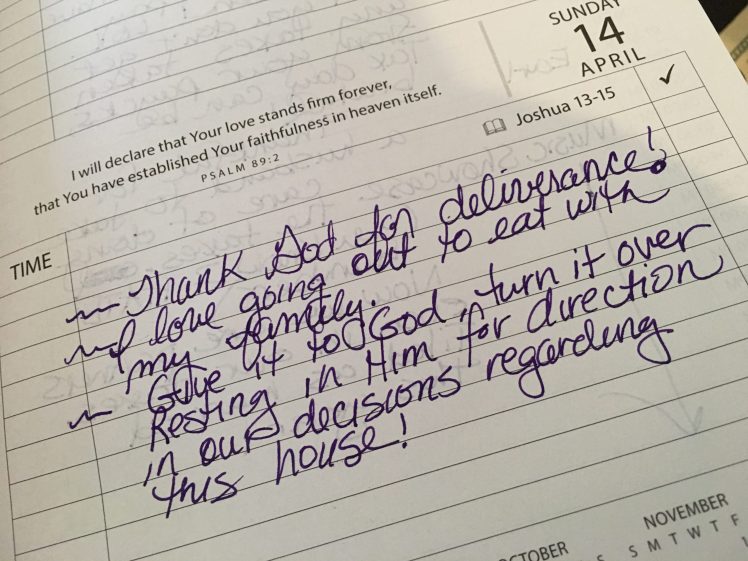 SUNDAY
14
APRIL
I will declare that Your love stands firm forever,
that You have established Your faithfulness in heaven itself.
PSALM 89:2
Joshua 13-15
✓
TIME
~ Thank God for deliverance!
~ I love going out to eat with
my family.
~ Give it to God, turn it over
Resting in Him for direction
in our decisions regarding
this house!
OCTOBER
NOVEMBER
S M T W T F